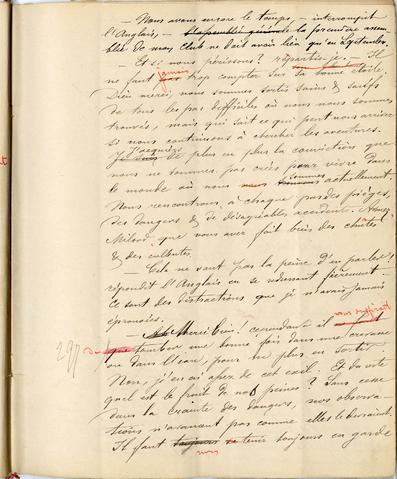 — Nous avons encore le temps, — interrompit
l'Anglais, — l'assemblée générale la première assem-
blée de mon Club ne doit avoir lieu qu'en Septembre.
— Et si nous périssons? répartis-je. — Il
ne faut pas jamais trop compter sur sa bonne étoile.
Dieu merci, nous sommes sortis sains & saufs
de tous les pas difficiles où nous nous sommes
trouvés, mais qui sait ce qui peut nous arriver
si nous continuons à chercher les aventures.
J'acquiers de plus en plus la conviction que
nous ne sommes pas créés pour vivre dans
le monde où nous nous sommes actuellement.
Nous rencontrons, à chaque pas des pièges,
des dangers & de désagréables accidents.
Milord, que vous avez fait bien des chûtes
& des culbutes.
— Cela ne vaut pas la peine d'en parler!
répondit l'Anglais en se redressant fièrement.
Ce sont des distractions que je n'avais jamais
éprouvées.
— Merci bien! cependant il
que tomber une bonne fois dans une crevasse
ou dans l'eau, pour ne plus en sortir
Non, j'en ai assez de cet exil. Et du reste
quel est le fruit de nos peines? Sans cesse
dans la crainte des dangers, nos observa-
tions n'avancent pas comme elles le devraient.
Il faut toujours se tenir toujours en garde
nous
297